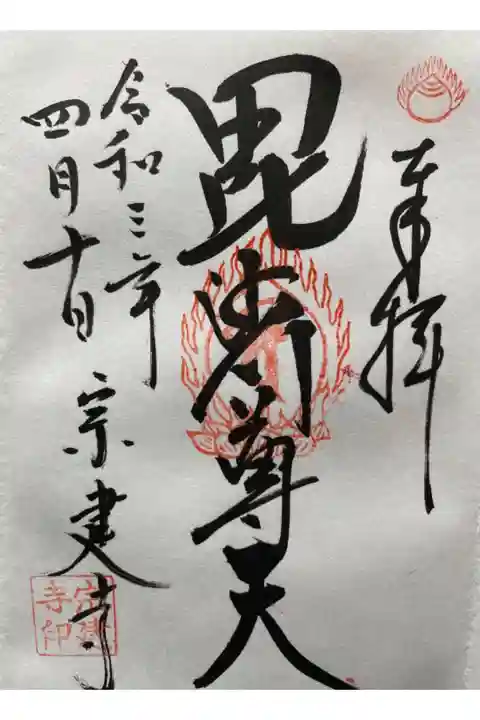 奉拝
毘沙門尊天
令和三年
四月十日
宗建寺
宗建寺印